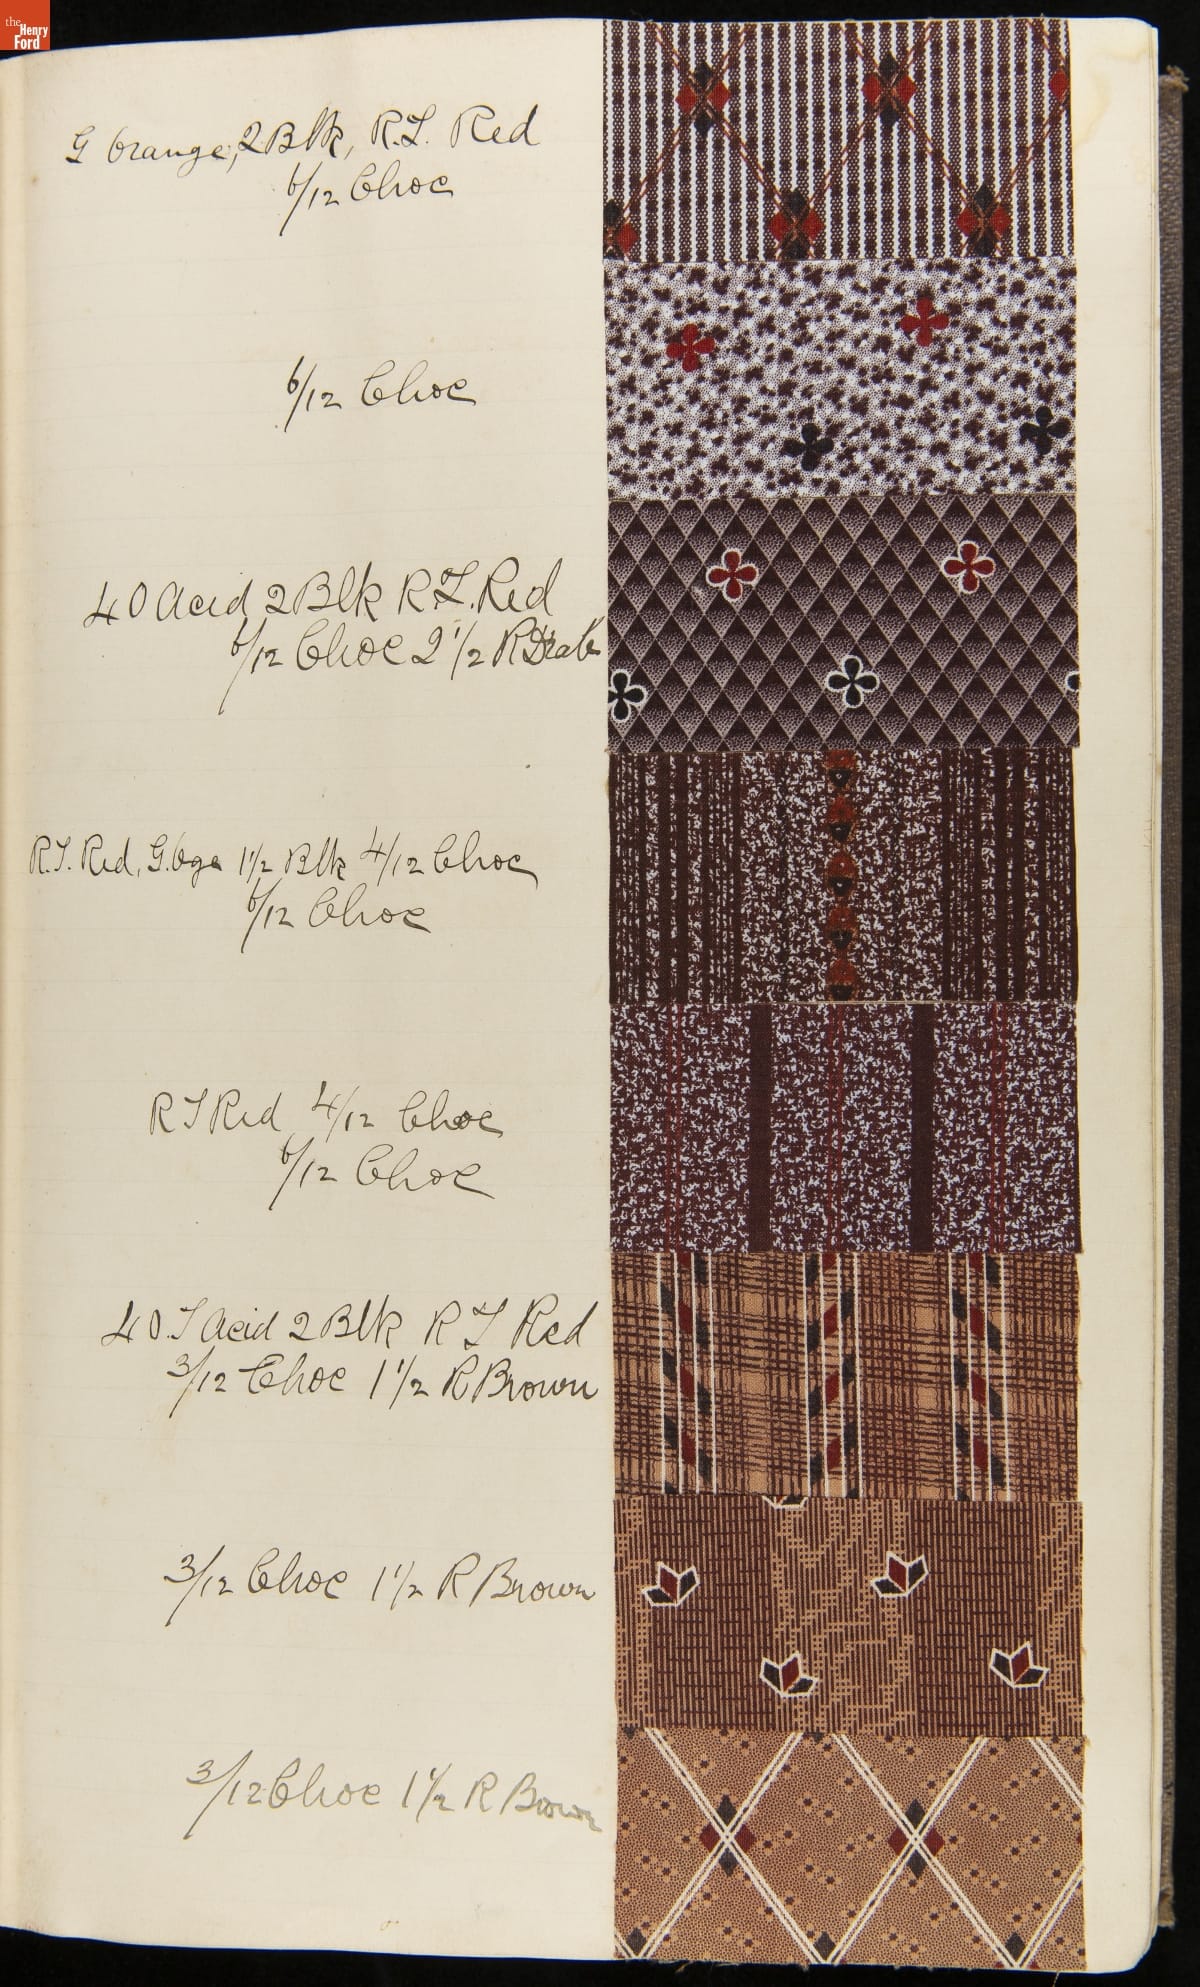 the
Henry
Ford
G Orange, 2 Blk, R.T. Red
6/12 Choc
6/12 Choc
40 Acid 2 Blk R.T. Red
6/12 Choc 2 1/2 R Drab
R.T. Red, G. Oge 1 1/2 Blk 4/12 Choc
6/12 Choc
R T Red 4/12 Choc
6/12 Choc
40.T Acid 2 Blk R T Red
3/12 Choc 1 1/2 R Brown
3/12 Choc 1 1/2 R Brown
3/12 Choc 1 1/2 R Brown